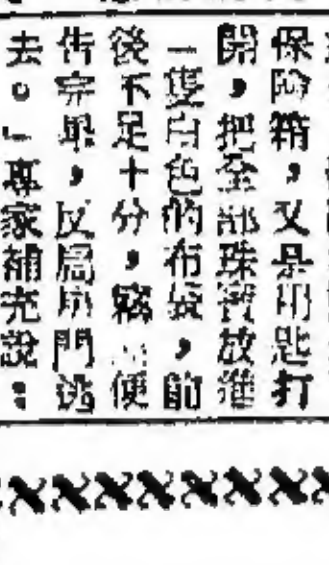 保險箱，又是用匙打
開，把全部珠寶放進
一隻白色的布袋，前
後不足十分，竊　便
告完畢，反扃房門逃
去。」專家補充說：